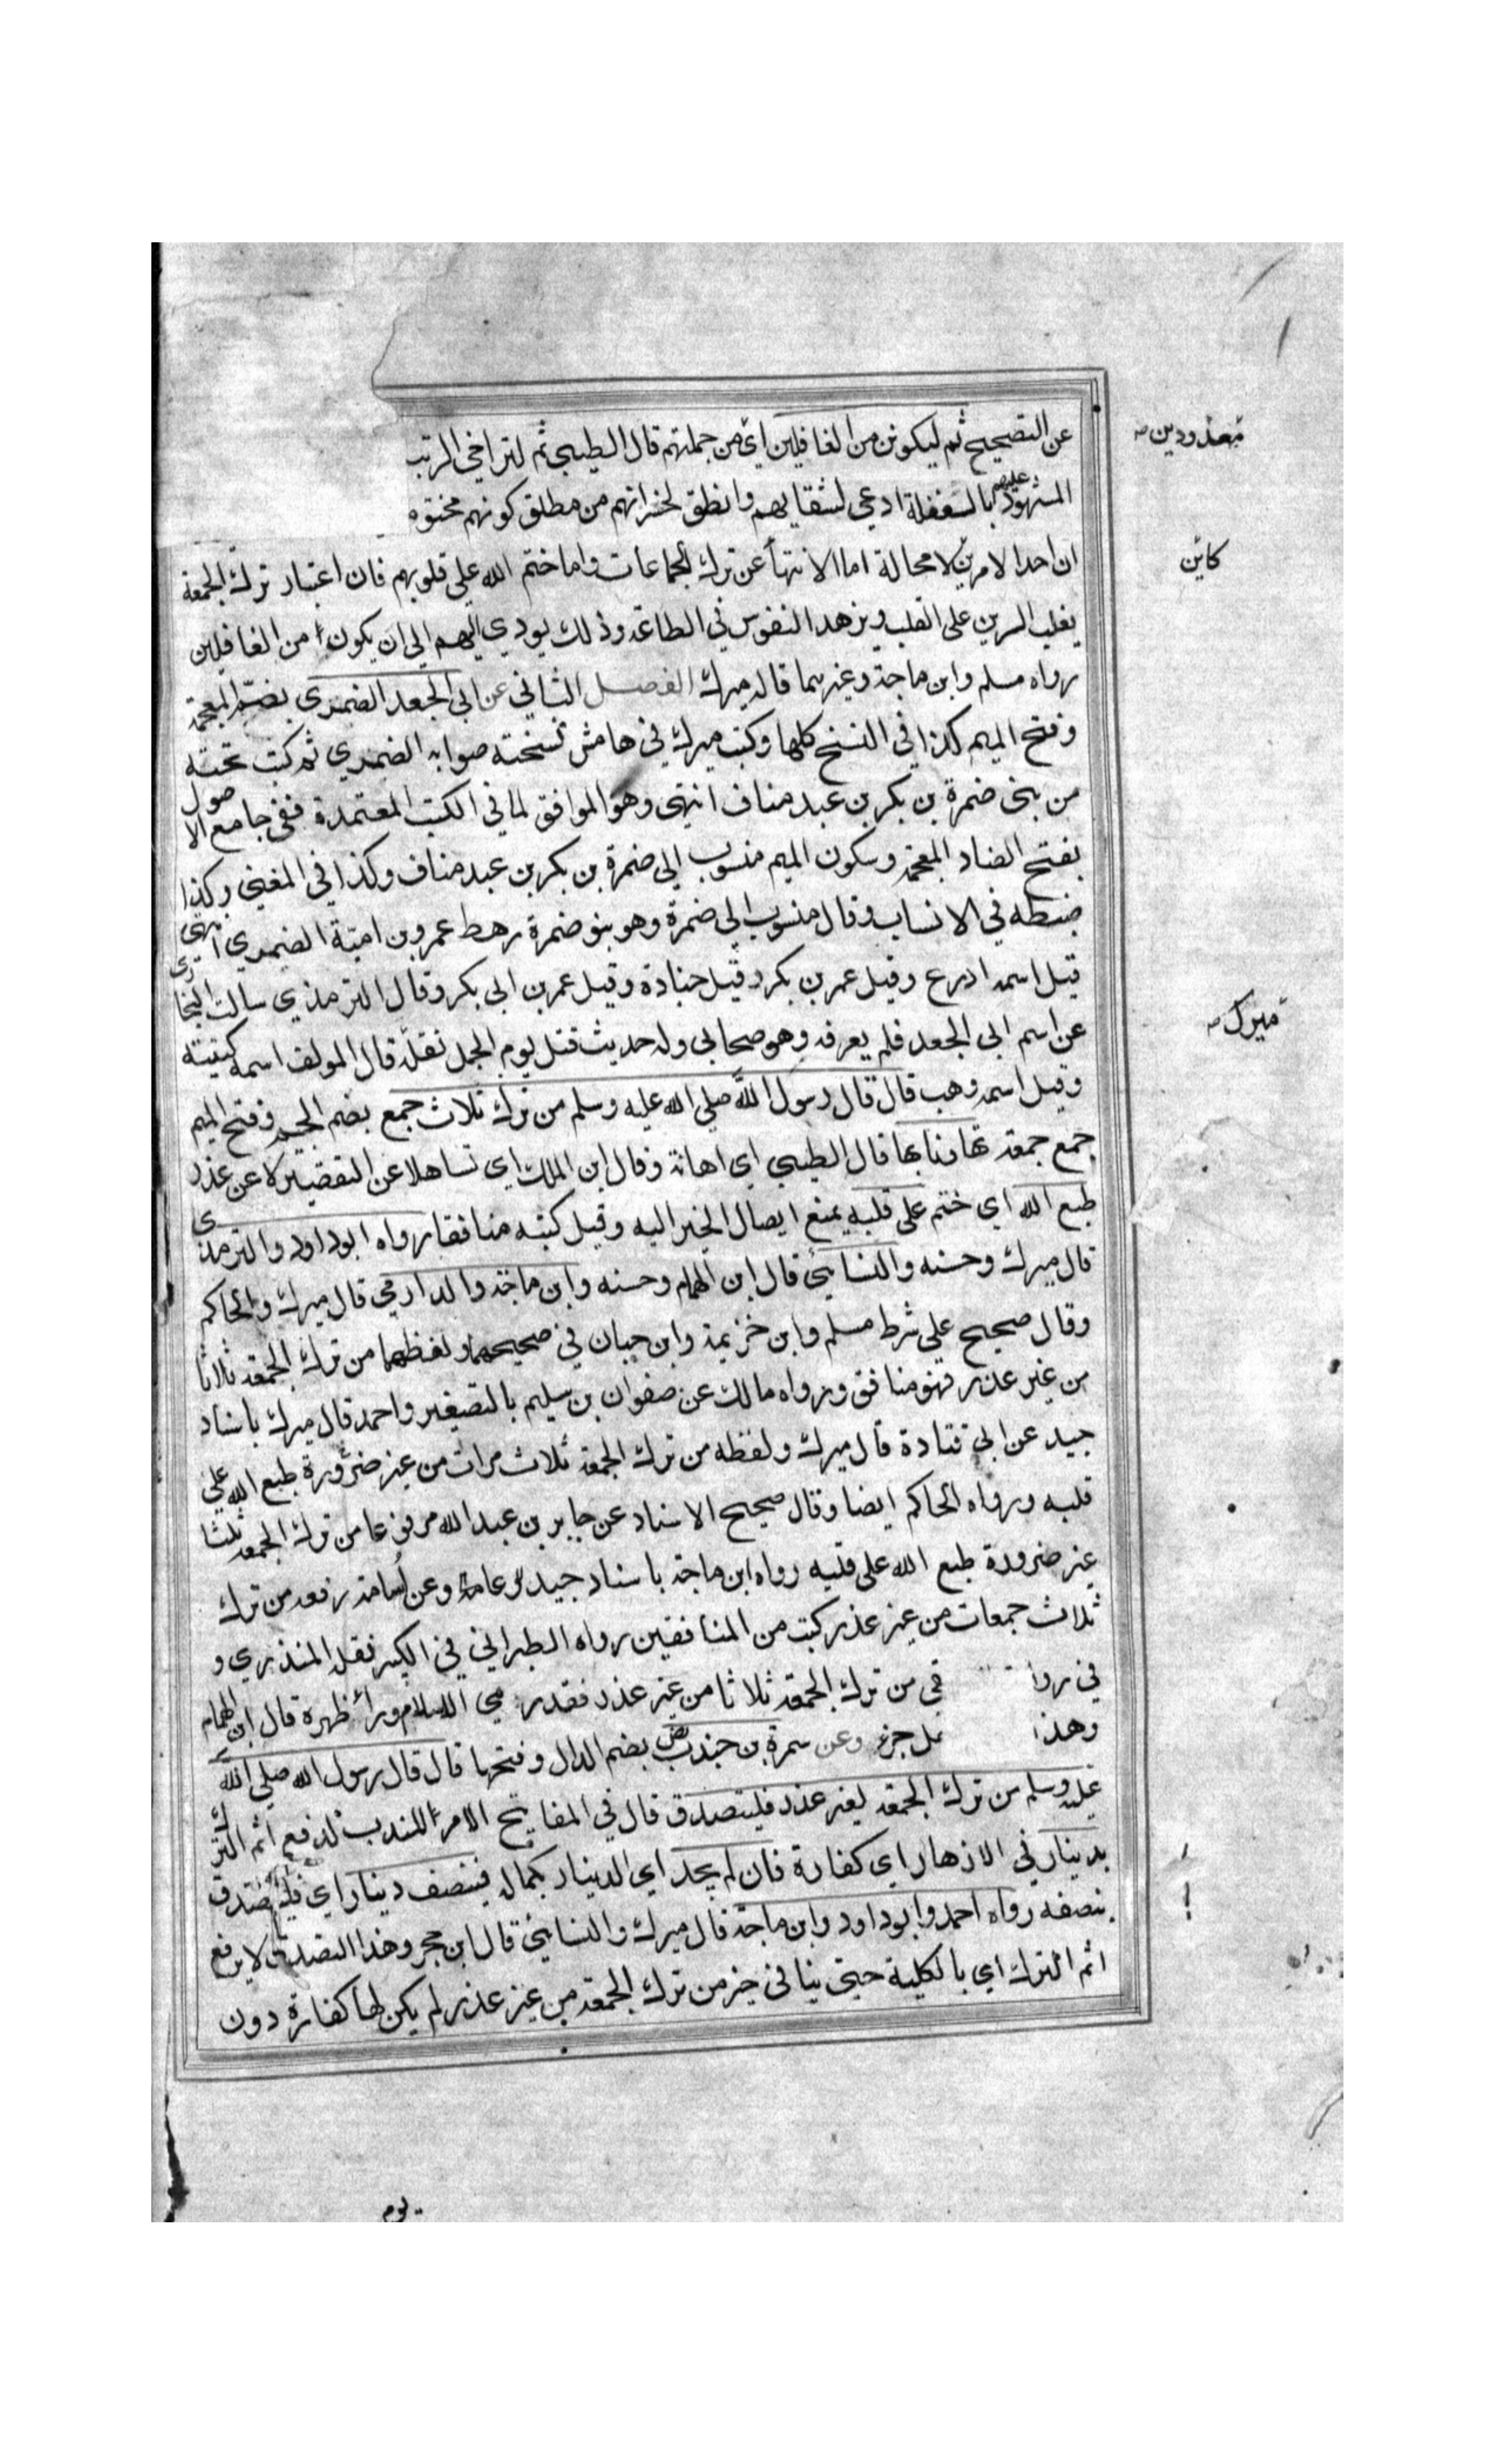 عن التصحيح ثم ليكونن من الغافلين اي من جملتهم قال الطيبي ثم لتراخي الرتب
المشهود عليهم بالغفلة ادعى لشقايهم وانطق لخسرانهم من مطلق كونهم مختو
ان احد الامرين لا محالة اما الانتهأ عن ترك الجماعات واما ختم الله على قلوبهم فان اعتبار ترك الجمعة
يغلب الرين على القلب ويزهد النفوس في الطاعة وذلك يودي اليهم الى ان يكون من الغافلين
رواه مسلم وابن ماجة وغيرهما قاله ميرك الفصل الثاني عن ابي الجعد الضمري بضم المعجمة
وفتح الميم كذا في النسخ كلها وكتب ميرك في هامش نسخته صوابه الضمري ثم كتب تحته
من بني ضمرة بن بكر بن عبد مناف انتهى وهو الموافق لما في الكتب المعتمدة ففي جامع الاصول
بفتح الضاد المعجمة وسكون الميم منسوب الى ضمرة بن بكر بن عبد مناف وكذا في المغني وكذا
ضبطه في الانساب وقال منسوب الى ضمرة وهو بنو ضمرة رهط عمرو بن امية الضمري انتهى
قيل اسمه ادرع وقيل عمر بن بكر وقيل جنادة وقيل عمر بن ابي بكر وقال الترمذي سالت البخاري
عن اسم ابي الجعد فلم يعرفه وهو صحابي وله حديث قتل يوم الجمل نقله قال المولف اسمه كنيته
وقيل اسمه وهب قال قال رسول الله صلى الله عليه وسلم من ترك ثلاث جمع بضم الجيم وفتح الميم
جمع جمعة تهاونا بها قال الطيبي اي اهانة وقال ابن الملك اي تساهلا عن التقصير لا عن عذر
طبع الله اي ختم على قلبه بمنع ايصال الخير اليه وقيل كتبه منافقا رواه ابو داود والترمذي
قال ميرك وحسنه والنسايي قال ابن الهمام وحسنه وابن ماجة والدارمي قال ميرك والحاكم
وقال صحيح على شرط مسلم وابن خزيمة وابن حبان في صحيحهما ولفظهما من ترك الجمعة ثلاثا
من غير عذر فهو منافق ورواه مالك عن صفوان بن سليم بالتصغير واحمد قال ميرك باسناد
جيد عن ابي قتادة قال ميرك ولفظه من ترك الجمعة ثلاث مرات من غير ضرورة طبع الله على
قلبه ورواه الحاكم ايضا وقال صحيح الاسناد عن جابر بن عبد الله مرفوعا من ترك الجمعة ثلثا
غير ضرورة طبع الله على قلبه رواه ابن ماجة باسناد جيد وعن اسامة رفعه من ترك
ثلاث جمعات من غير عذر كتب من المنافقين رواه الطبراني في الكبير نقله المنذري و
في روا قي من ترك الجمعة ثلاثا من غير عذر فقد ر مي الاسلام ورأ ظهره قال ابن الهمام
وهذا مل جزء وعن سمرة بن جندب بضم الدال وفتحها قال قال رسول الله صلى الله
عليه وسلم من ترك الجمعة لغير عذر فليتصدق قال في المفاتيح الامر للندب لدفع اثم الترك
بدينار في الازهار اي كفارة فان لم يجد اي الدينار بكماله فبنصف دينار اي فليتصدق
بنصفه رواه احمد وابو داود وابن ماجة قال ميرك والنسايي قال ابن حجر وهذا التصدق لا يرفع
اثم الترك اي بالكلية حتى ينافي خبر من ترك الجمعة من غير عذر لم يكن لها كفارة دون
يوم
معدودين صح
كاين
ميرك صح